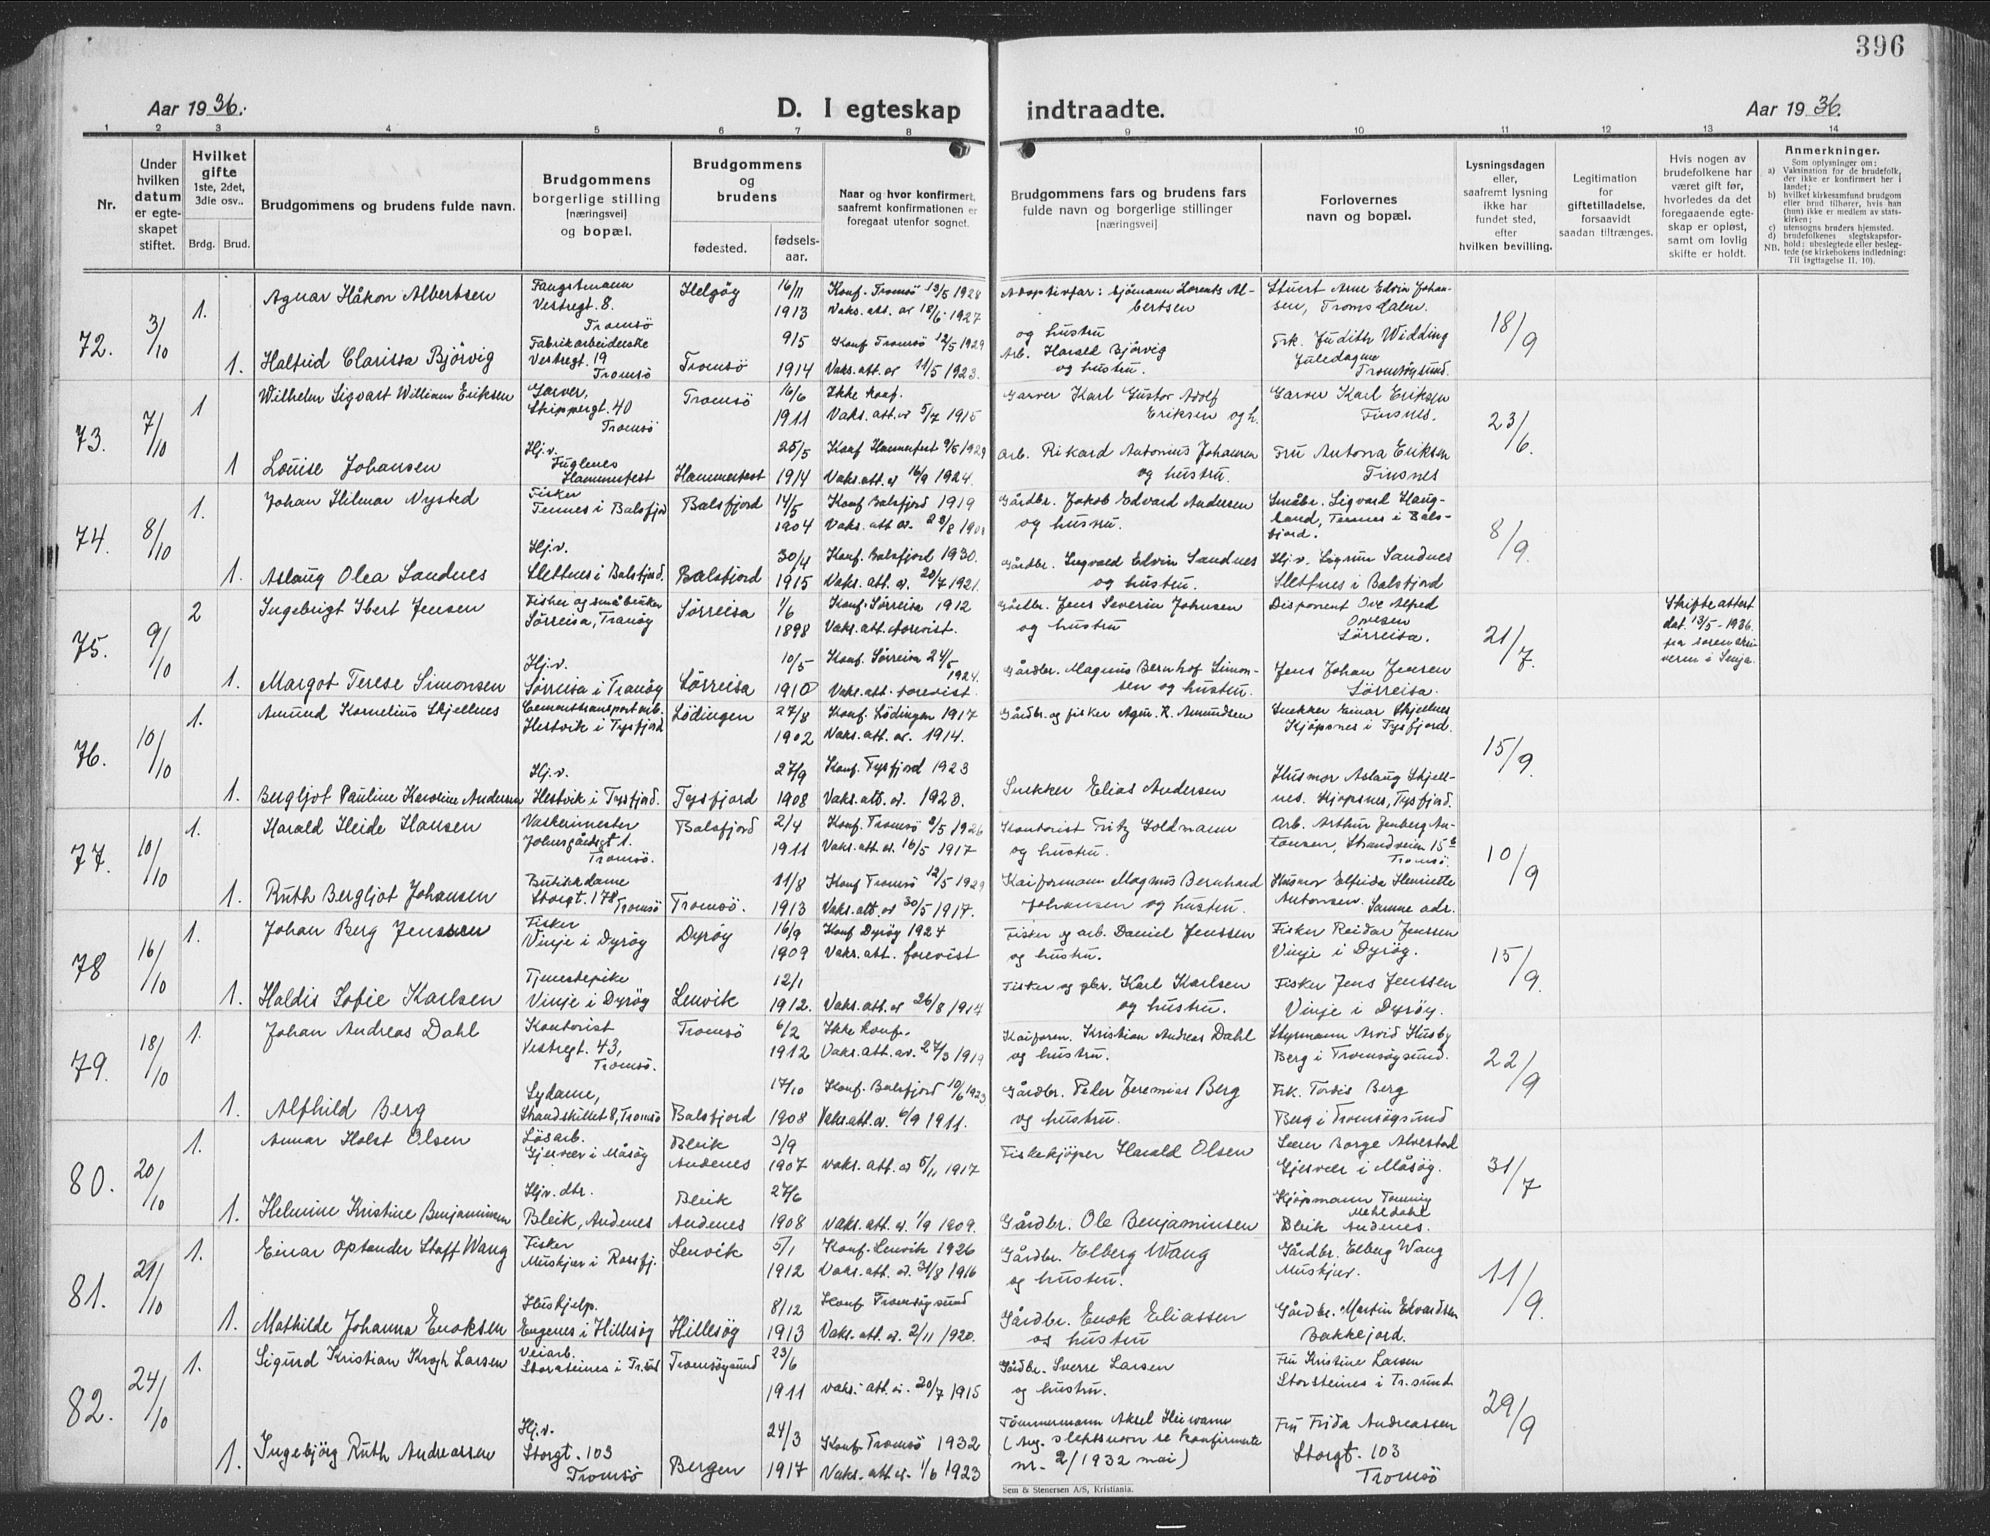 396
Aar 1936.
D. I egteskap indtraadte.
Aar 1936.
1 2 3 4 5 6 7 8 9 10 11 12 13 14
Nr.
Under hvilken datum er egteskapet stiftet.
Hvilket gifte 1ste, 2det, 3die osv..
Brdg. Brud.
Brudgommens og brudens fulde navn.
Brudgommens borgerlige stilling [næringsvei] og bopæl.
Brudgommens og brudens
fødested.
fødselsaar.
Naar og hvor konfirmert, saafremt konfirmationen er foregaat utenfor sognet.
Brudgommens fars og brudens fars fulde navn og borgerlige stillinger [næringsvei]
Forlovernes navn og bopæl.
Lysningsdagen eller, saafremt lysning ikke har fundet sted, efter hvilken bevilling.
Legitimation for giftetilladelse, forsaavidt saadan tiltrænges.
Hvis nogen av brudefolkene har været gift før, hvorledes da det foregaaende egteskap er opløst, samt om lovlig skifte er holdt.
Anmerkninger.
Som oplysninger om:
a) Vaksination for de brudefolk, der ikke er konfirmert her i landet;
b) hvilket kirkesamfund brudgom eller brud tilhører, hvis han (hun) ikke er medlem av statskirken;
c) utensogns bruders hjemsted.
d) brudefolkenes slegtskapsforhold: ubeslegtede eller beslegtede (se kirkebokens indledning:
NB.
Til Iagttagelse II. 10).
72. 3/10 1. Agnar Håkon Albertsen Fangstmann Vestregt. 8. Tromsö Helgöy 16/11 1913 Konf. Tromsö 13/5 1928 Vaks. att. av 18/6 1927 Adoptivfar: Sjömann Lorents Albertsen og hustru Stuert Arne Edvin Johansen, Tromsdalen. 18/9
1. Halfrid Clarissa Bjørvig Fabrikarbeiderske Vestregt. 19 Tromsö Tromsö 9/5 1914 Konf Tromsö 12/5 1929 Vaks. att. av 11/5 1923. Arb. Harald Bjørvig og hustru. Frk. Judith Widding Tromsöysund.
73. 7/10 1 Wilhelm Sigvart William Eriksen Garver, Skippergt. 40 Tromsö Tromsö 16/6 1911 Ikke konf. Vaks. att. av 5/7 1915 Garver Karl Gustav Adolf Eriksen og h. Garver Karl Eriksen Finsnes. 23/6
1 Louise Johansen Hj.v. Fuglenes Hammerfest Hammerfest 25/5 1914 Konf Hammerfest 9/5 1929 Vaks. att. av 16/9 1924. Arb. Rikard Antonius Johansen og hustru. Fru Antona Eriksen Finsnes
74. 8/10 1. Johan Hilmar Nysted Fisker Tennes i Balsfjord Balsfjord 14/5 1904 Konf Balsfjord 1919 Gårdbr. Jakob Edvard Andersen og hustru. Småbr. Sigvard Haugland, Tennes i Balsfjord. 8/9
1. Aslaug Olea Sandnes Hj.v. Slettnes i Balsfjord. Balsfjord 30/4 1915 Konf. Balsfjord 1930. Vaks. att. av. 20/7 1921. Gårdbr. Ingvald Edvin Sandnes og hustru. Hj.v. Sigrun Sandnes Slettnes i Balsfjord
75. 9/10 2 Ingebrigt Ibert Jensen Fisker og småbruker Sørreisa, Tranöy Sørreisa 1/6 1898 Konf. Sørreisa 1912 Vaks. att. forevist. Gårdbr. Jens Severin Johnsen og hustru Disponent Ove Alfred Ovesen Sørreisa. 21/7 Skifteattest dat. 13/5-1936. fra sorenskriveren i Senja.
1. Margot Terese Simonsen Hj.v. Sørreisa i Tranöy Sørreisa 10/5 1910 Konf. Sørreisa 24/5 1924. Vaks. att. forevist. Gårdbr. Magnus Bernhof Simonsen og hustru. Jens Johan Jensen Sørreisa.
76. 10/10 1. Amund Kornelius Skjellnes Cementtransportarb. Hestvik i Tysfjord Lödingen 27/8 1902 Konf. Lödingen 1917 Vaks. att. av. 1914. Gårdbr. og fisker Agn. R. Amundsen Snekker Einar Skjellnes Kjöpsnes i Tysfjord. 15/9
1. Bergljot Pauline Karoline Andersen Hj.v. Hestvik i Tysfjord. Tysfjord 27/9 1908 Konf. Tysfjord 1923 Vaks. att. av. 1923. Snekker Elias Andersen Husmor Aslaug Skjellnes. Kjöpsnes, Tysfjord.
77. 10/10 1. Harald Heide Hansen Vaskerimester 1. Tromsö. Balsfjord 2/4 1911 Konf. Tromsö 2/5 1926 Vaks. att. av. 16/5 1917 Kontorist Fritz Goldmann og hustru. Arb. Arthur Jenberg Antonsen, Strandveien 15 b Tromsö. 10/9
1. Ruth Bergljot Johansen Butikkdame Storgt. 178 Tromsö Tromsö. 11/8 1913 Konf Tromsö 12/5 1929 Vaks. att. av 30/5 1917. Kaiformann Magnus Bernhard Johansen og hustru. Husmor Elfrida Henriette Antonsen. Samme adr.
78 16/10 1. Johan Berg Jenssen Fisker Vinje i Dyröy Dyröy 16/9 1909 Konf Dyröy 1924 Vaks. att. forevist Fisker og arb. Daniel Jenssen og hustru. Fisker Reidar Jenssen Vinje i Dyröy. 15/9.
1. Haldis Sofie Karlsen Tjenestepike Vinje i Dyröy Lenvik 12/1 1912. Vaks. att. av 26/8 1914 Fisker og gbr. Karl Karlsen og hustru. Fisker Jens Jenssen Vinje i Dyröy.
79. 18/10 1. Johan Andreas Dahl Kontorist Vestregt. 43, Tromsö. Tromsö 6/2 1912 Ikke konf. Vaks. att. av. 27/3 1919 Kaiform. Kristian Andreas Dahl og hustru. Styrmann Arvid Husby Berg i Tromsöysund. 22/9
1. Alfhild Berg Sydame, Strandskillet 8, Tromsö Balsfjord 17/10 1908 Konf. Balsfjord 10/6 1923 Vaks. att. av. 6/9 1911. Gårdbr. Peder Jeremias Berg og hustru. Frk. Tordis Berg Berg i Tromsöysund
80. 20/10 1. Annar Holst Olsen Lösarb. Gjesvær i Måsöy Bleik Andenes 3/9 1907 Vaks. att. av 5/11 1917 Fiskekjöper Harald Olsen Borge Alvestad Gjesvær i Måsöy. 31/7
1. Helmine Kristine Benjaminsen Hj.v. dtr. Bleik, Andenes Bleik Andenes 27/6 1908 Vaks. att. av. 1/9 1909. Gårdbr. Ole Benjaminsen Kjöpmann Tonning Bleik Andenes.
81. 21/10 1. Einar Optander Staff Wang Fisker Muskjær i Rossfj. Lenvik 5/1 1912 Konf. Lenvik 1926 Vaks. att. av. 31/8 1916 Gårdbr. Elberg Wang og hustru. Gårdbr. Elberg Wang Muskjær. 11/9.
1. Mathilde Johanna Enoksen Hushjelp. Engenes i Hillesöy Hillesöy 8/12 1913 Konf. Tromsöysund Vaks. att. av. 2/11 1920. Gårdbr. Enok Eliassen og hustru Gårdbr. Martin Edvardsen Bakkejord.
82. 24/10 1. Sigurd Kristian Krogh Larsen Veiarb. Storsteines i Tr.sd Tromsöysund 23/6 1911 Vaks. att. av. 20/7 1915 Gårdbr. Sverre Larsen og hustru. Fru Kristine Larsen Storsteines i Tr.sund. 29/9
1. Ingebjörg Ruth Andreassen Hj.v. Storgt. 103 Tromsö Bergen 24/3 1917 Konf. Tromsö 1932 Vaks. att. av. 1/6 1923 Tömmermann Aksel (Ang. slektsnavn se konfirmerte nr. 2/1932 mai) Fru Frida Andreassen Storgt. 103 Tromsö
Sem & Stenersen A/S, Kristiania.